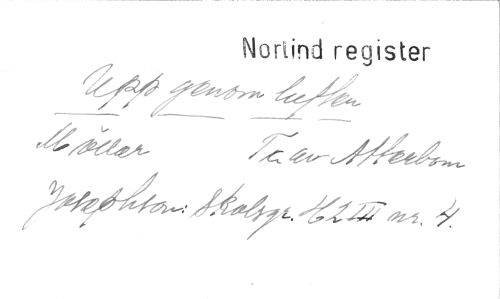 Norlind register
Upp genom luften
Möller Tr. av Atterbom
Josephson: Skolsgr. H2 III nr. 4.